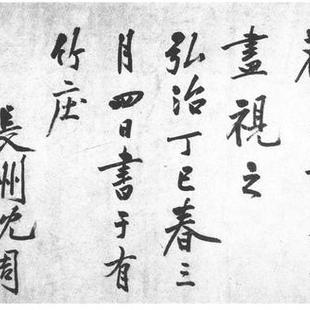 畫視之
弘治丁巳春三
月四日書于有
竹庄
長州沈周